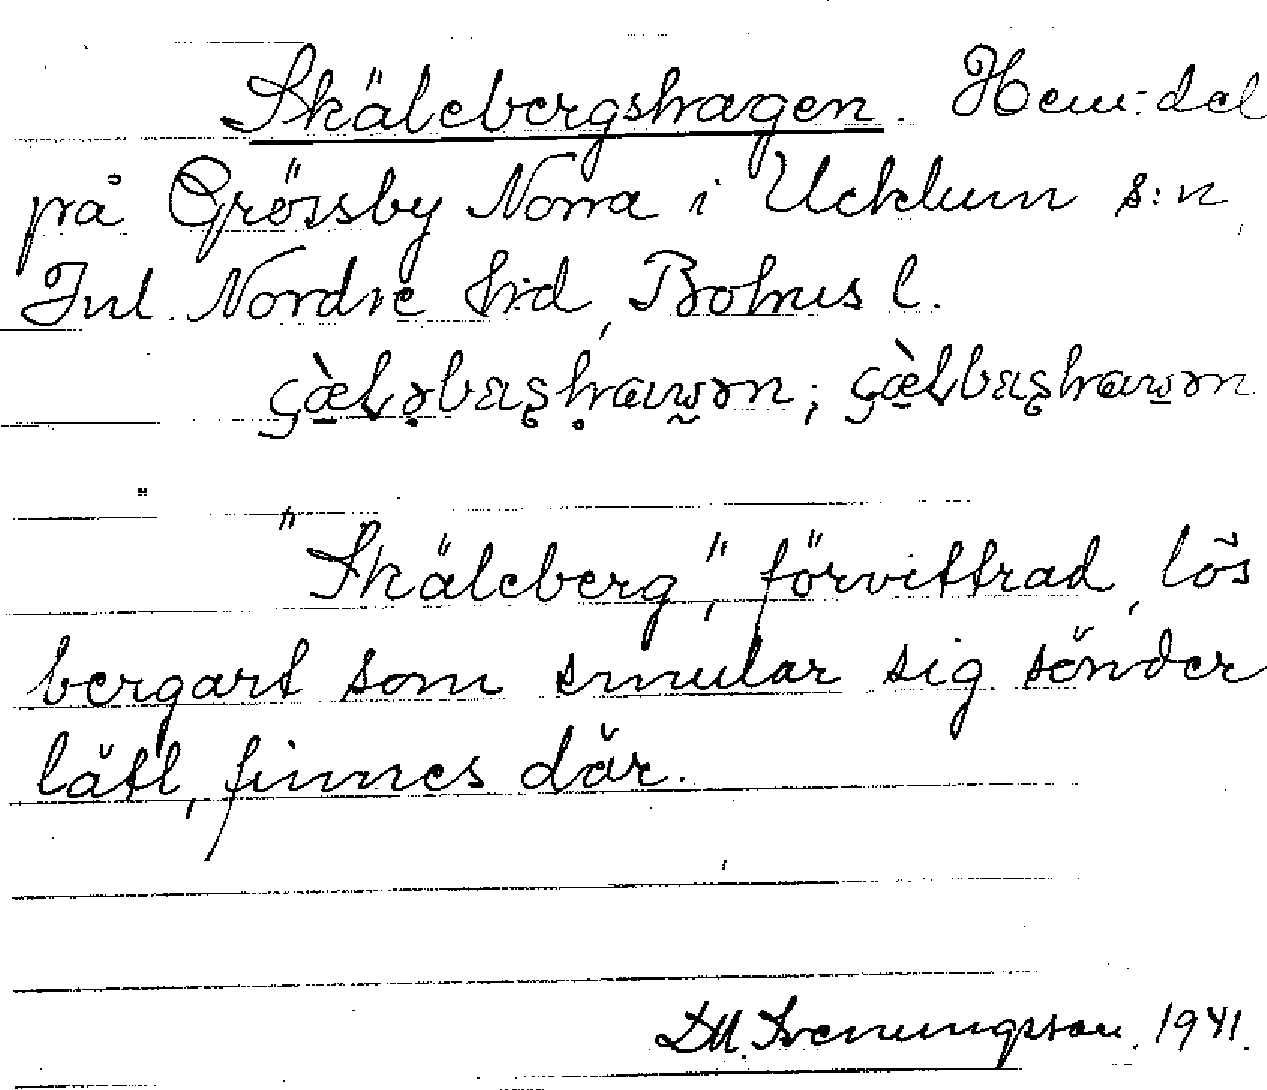 Skälebergshagen. Hem:del
på Grössby Norra i Ucklum s:n
Inl. Nordre hd, Bohus l.
"Skäleberg", förvittrad, lös
bergart som smular sig sönder
lätt, finnes där.
D.M. Svenungsson. 1941.